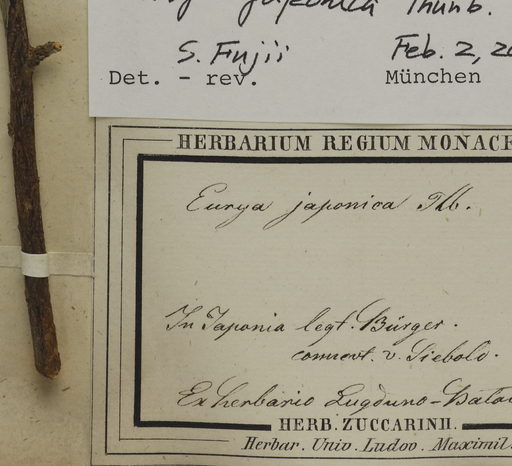 japonica Thunb.
S. Fujii Feb. 2, 20
Det. - rev. München
HERBARIUM REGIUM MONACE
Eurya japonica Thb.
In Japonia legt. Bürger.
v. Siebold.
Ex herbario Lugduno-Batav
HERB. ZUCCARINII.
Herbar. Univ. Ludov. Maximil.